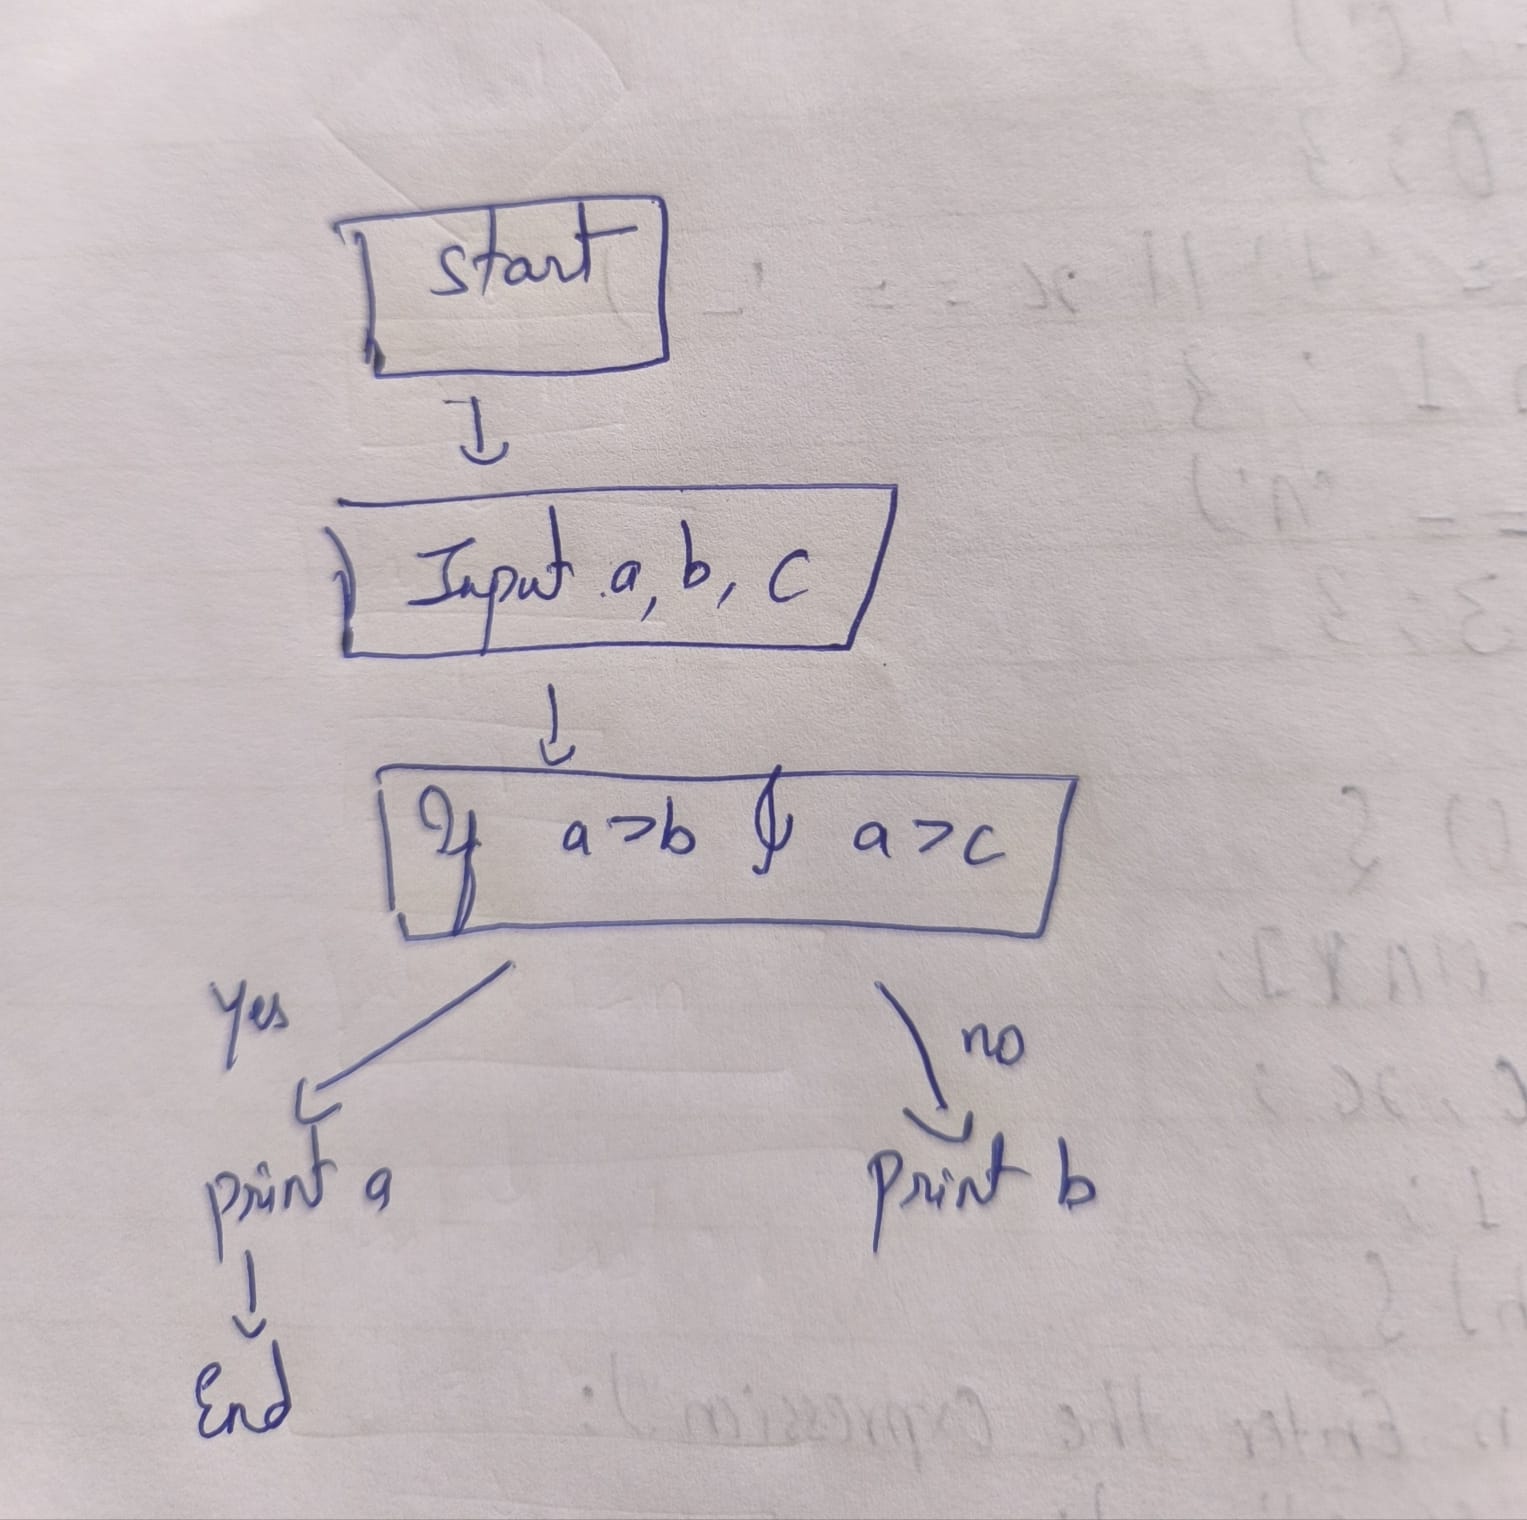 start
Input a, b, c
If a>b & a>c
Yes
no
print a
print b
End